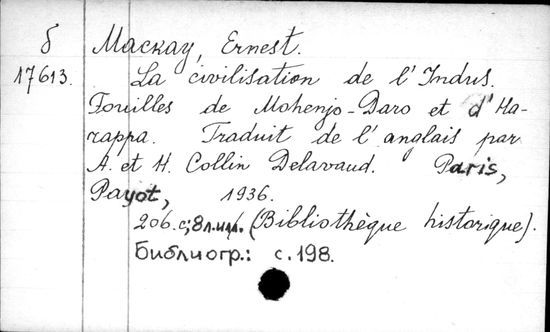 б Mackay, Ernest.
17613. La civilisation de l'Indus.
Fouilles de Mohenjo-Daro et d'Ha-
rappa. Traduit de l'anglais par
A. et H. Collin Delavaud. Paris,
Payot, 1936.
206.с; 8л.илл. (Bibliothèque historique).
Библиогр.: с.198.